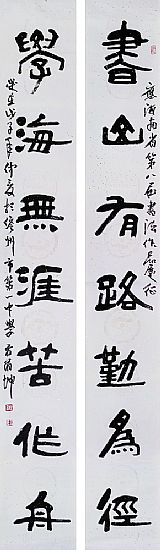 海南省第八屆書法作品展
書山有路勤為徑
學海無涯苦作舟
歲在戊子年仲夏於儋州市第一中學